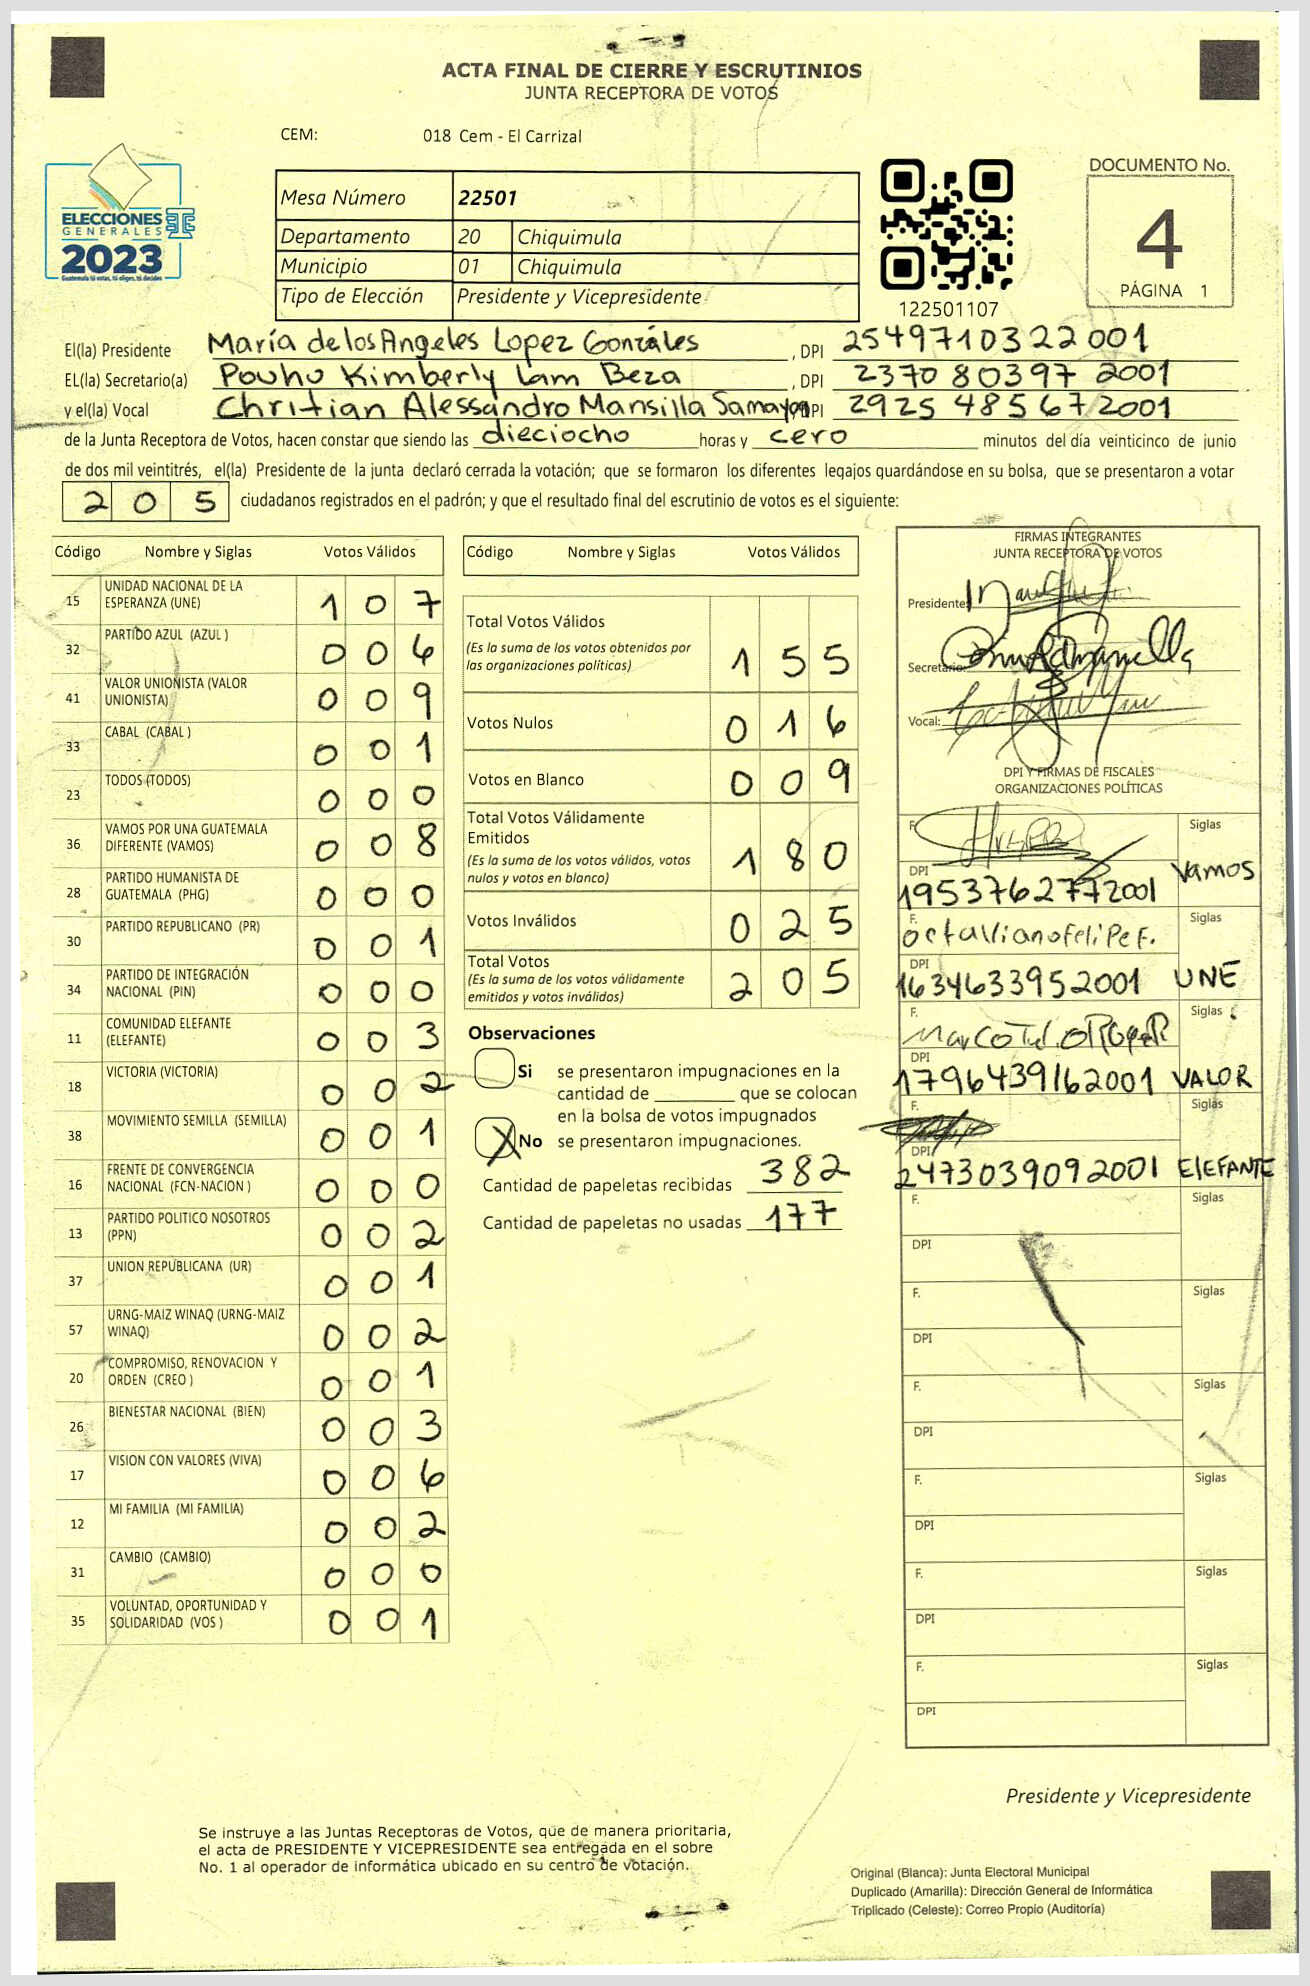 ACTA FINAL DE CIERRE Y ESCRUTINIOS
JUNTA RECEPTORA DE VOTOS
CEM: 018 Cem - El Carrizal
ELECCIONES
GENERALES
2023
Guatemala tú votas, tú eliges, tú decides
Mesa Número 22501
Departamento 20 Chiquimula
Municipio 01 Chiquimula
Tipo de Elección Presidente y Vicepresidente
122501107
DOCUMENTO No.
4
PÁGINA 1
El(la) Presidente María de los Angeles Lopez Gonzáles , DPI 2549710322001
EL(la) Secretario(a) Pouhu Kimberly Lam Beza , DPI 2370 80397 2001
y el(la) Vocal Chritian Alessandro Mansilla Samayoa DPI 2925 48567 2001
de la Junta Receptora de Votos, hacen constar que siendo las dieciocho horas y cero minutos del día veinticinco de junio
de dos mil veintitrés, el(la) Presidente de la junta declaró cerrada la votación; que se formaron los diferentes legajos guardándose en su bolsa, que se presentaron a votar
205 ciudadanos registrados en el padrón; y que el resultado final del escrutinio de votos es el siguiente:
Código Nombre y Siglas Votos Válidos
15 UNIDAD NACIONAL DE LA
ESPERANZA (UNE) 1 0 7
32 PARTIDO AZUL (AZUL ) 0 0 6
41 VALOR UNIONISTA (VALOR
UNIONISTA) 0 0 9
33 CABAL (CABAL ) 0 0 1
23 TODOS (TODOS) 0 0 0
36 VAMOS POR UNA GUATEMALA
DIFERENTE (VAMOS) 0 0 8
28 PARTIDO HUMANISTA DE
GUATEMALA (PHG) 0 0 0
30 PARTIDO REPUBLICANO (PR) 0 0 1
34 PARTIDO DE INTEGRACIÓN
NACIONAL (PIN) 0 0 0
11 COMUNIDAD ELEFANTE
(ELEFANTE) 0 0 3
18 VICTORIA (VICTORIA) 0 0 2
38 MOVIMIENTO SEMILLA (SEMILLA) 0 0 1
16 FRENTE DE CONVERGENCIA
NACIONAL (FCN-NACION ) 0 0 0
13 PARTIDO POLITICO NOSOTROS
(PPN) 0 0 2
37 UNION REPUBLICANA (UR) 0 0 1
57 URNG-MAIZ WINAQ (URNG-MAIZ
WINAQ) 0 0 2
20 COMPROMISO, RENOVACION Y
ORDEN (CREO ) 0 0 1
26 BIENESTAR NACIONAL (BIEN) 0 0 3
17 VISION CON VALORES (VIVA) 0 0 6
12 MI FAMILIA (MI FAMILIA) 0 0 2
31 CAMBIO (CAMBIO) 0 0 0
35 VOLUNTAD, OPORTUNIDAD Y
SOLIDARIDAD (VOS ) 0 0 1
Código Nombre y Siglas Votos Válidos
Total Votos Válidos
(Es la suma de los votos obtenidos por
las organizaciones políticas) 1 5 5
Votos Nulos 0 1 6
Votos en Blanco 0 0 9
Total Votos Válidamente
Emitidos
(Es la suma de los votos válidos, votos
nulos y votos en blanco) 1 8 0
Votos Inválidos 0 2 5
Total Votos
(Es la suma de los votos válidamente
emitidos y votos inválidos) 2 0 5
Observaciones
Si se presentaron impugnaciones en la
cantidad de ________ que se colocan
en la bolsa de votos impugnados
X No se presentaron impugnaciones.
Cantidad de papeletas recibidas 382
Cantidad de papeletas no usadas 177
FIRMAS INTEGRANTES
JUNTA RECEPTORA DE VOTOS
Presidente:
Secretario:
Vocal:
DPI Y FIRMAS DE FISCALES
ORGANIZACIONES POLÍTICAS
F. Siglas
DPI Vamos
1953762772001
F. Octaviano Felipe F. Siglas
DPI
1634633952001 UNE
F. Siglas
DPI
1796439162001 VALOR
F. Siglas
DPI
2473039092001 ElEFANTE
F. Siglas
DPI
F. Siglas
DPI
F. Siglas
DPI
F. Siglas
DPI
F. Siglas
DPI
F. Siglas
DPI
Presidente y Vicepresidente
Se instruye a las Juntas Receptoras de Votos, que de manera prioritaria,
el acta de PRESIDENTE Y VICEPRESIDENTE sea entregada en el sobre
No. 1 al operador de informática ubicado en su centro de votación.
Original (Blanca): Junta Electoral Municipal
Duplicado (Amarilla): Dirección General de Informática
Triplicado (Celeste): Correo Propio (Auditoría)